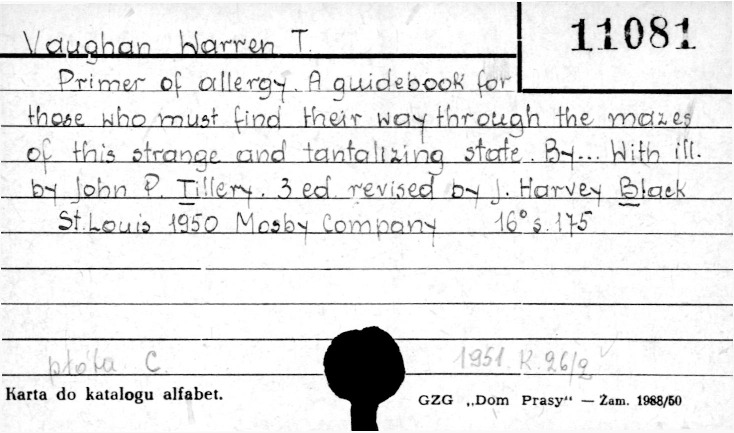 11081
Vaughan Warren T.
Primer of allergy. A guidebook for
those who must find their way through the mazes
of this strange and tantalizing state. By... With ill.
by John P. Tillery. 3 ed. revised by J. Harvey Black
St. Louis 1950 Mosby Company 16° s. 175
płóta C. 1951. K. 26/2
Karta do katalogu alfabet.
GZG „Dom Prasy“ — Żam. 1988/50